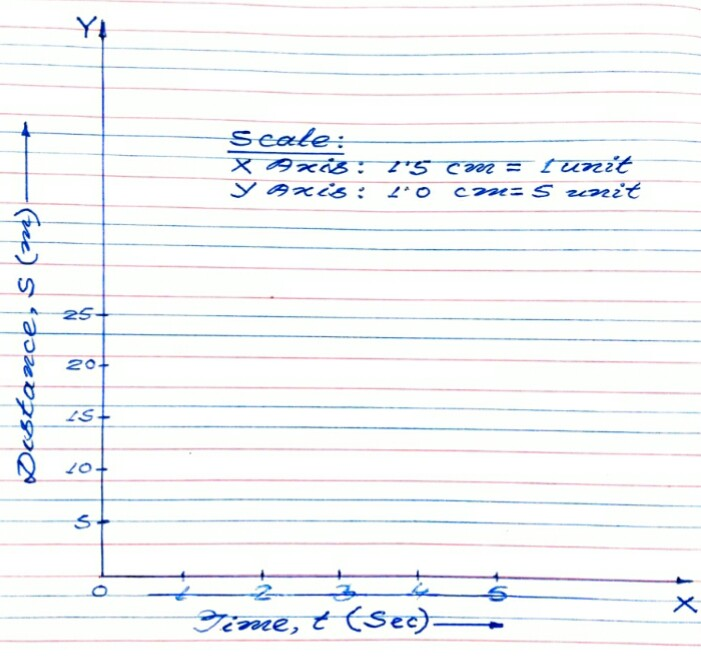 Y
Scale:
X Axis: 1.5 cm = 1 unit
Y Axis: 1.0 cm = 5 unit
Distance, S (m)
25
20
15
10
5
0 1 2 3 4 5
X
Time, t (Sec)